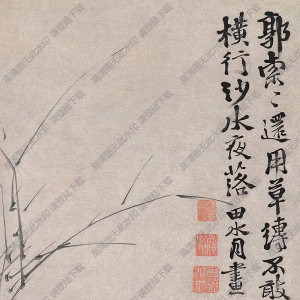 郭索〻還用草縛不敢
橫行沙水夜落 田水月畫